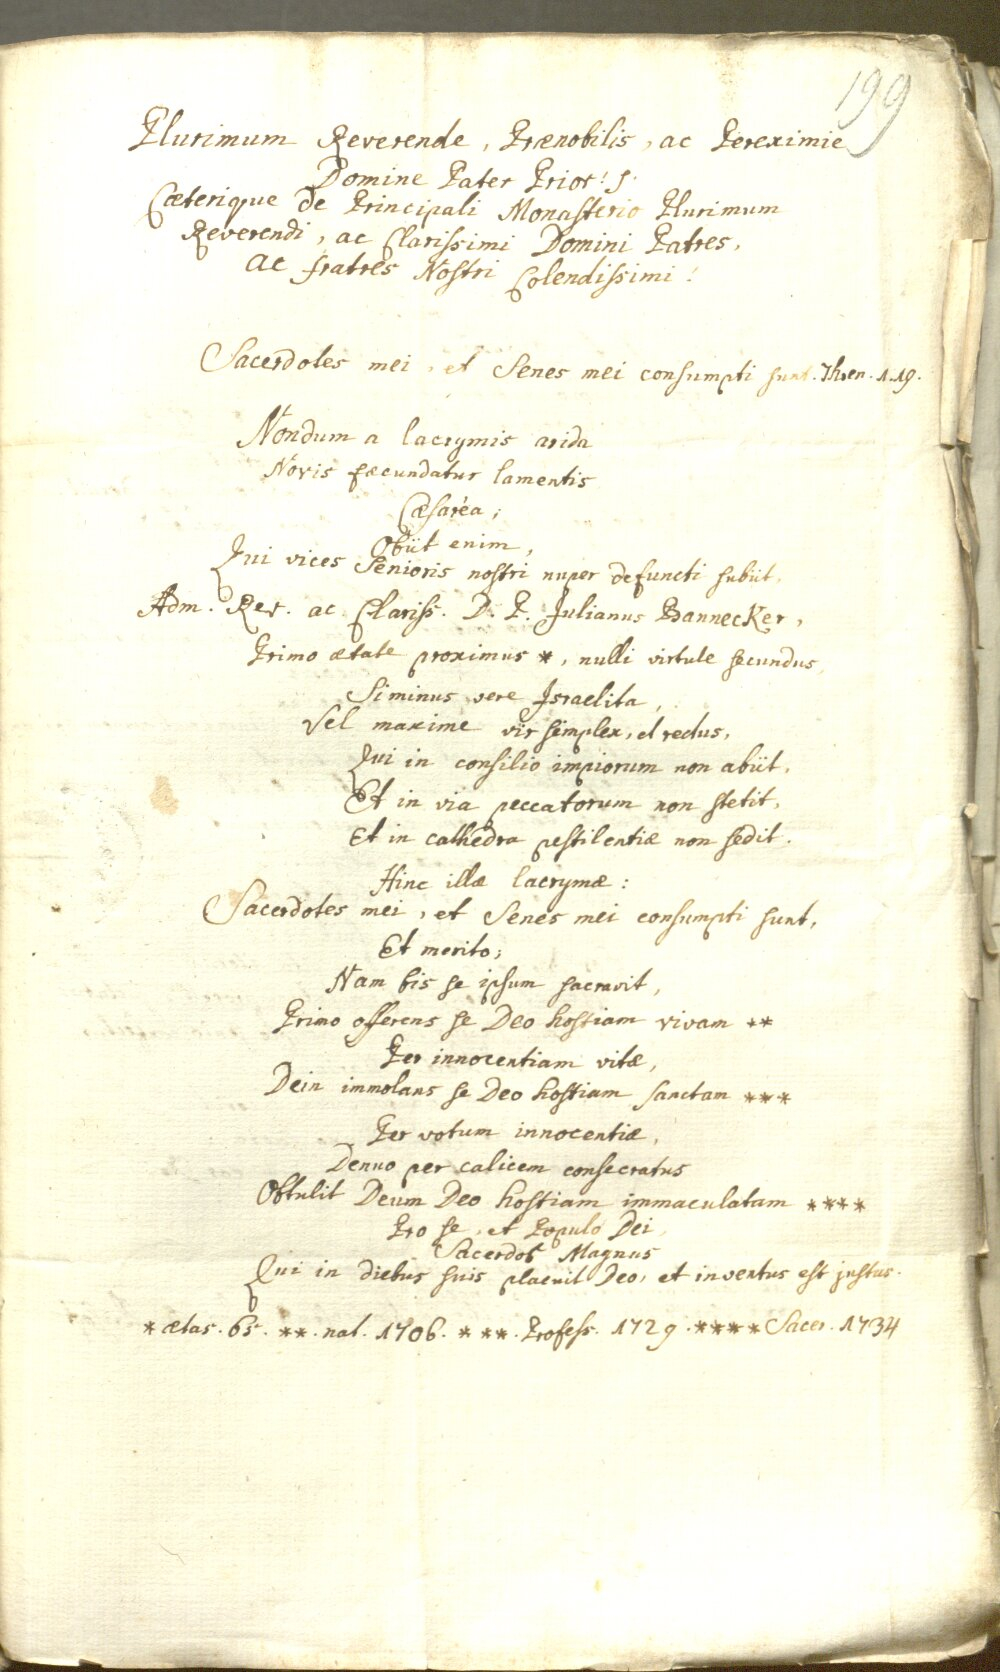 199
Plurimum Reverende, Prænobilis, ac Pereximie
Domine Pater Prior!
Cæterique de Principali Monasterio Plurimum
Reverendi, ac Clarissimi Domini Patres,
ac fratres Nostri Colendissimi!
Sacerdotes mei, et Senes mei consumpti sunt. Thren. 1.19.
Nondum a lacrymis arida
Novis fæcundatur lamentis
Cæsarea;
Obiit enim,
Qui vices Senioris nostri nuper defuncti subiit,
Adm. Rev. ac Clariss. D. P. Julianus Bannecker,
Primo ætate proximus *, nulli virtute secundus,
Siminus vere Israelita,
Vel maxime vir simplex, et rectus,
Qui in consilio impiorum non abiit,
Et in via peccatorum non stetit,
Et in cathedra pestilentiæ non sedit.
Hinc illæ lacrymæ:
Sacerdotes mei, et Senes mei consumpti sunt,
Et merito;
Nam bis se ipsum sacravit,
Primo offerens se Deo hostiam vivam **
Per innocentiam vitæ,
Dein immolans se Deo hostiam sanctam ***
Per votum innocentiæ,
Denuo per calicem consecratus
Obtulit Deum Deo hostiam immaculatam ****
Pro se, et Populo Dei,
Sacerdos Magnus
Qui in diebus suis placuit Deo, et inventus est justus.
* ætas. 65. **. nat. 1706. ***. Profess. 1729. **** Sacer. 1734